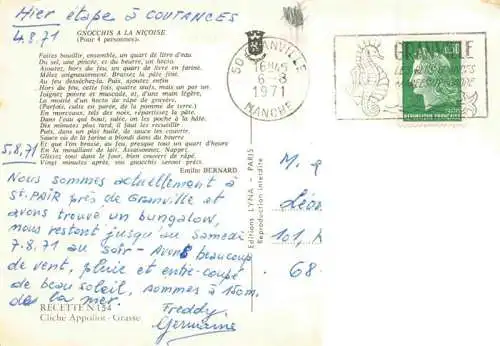 Hier étape à COUTANCES
4.8.71
GNOCCHIS A LA NIÇOISE
(Pour 4 personnes).
Faites bouillir, ensemble, un quart de litre d'eau.
Du sel, une pincée, et du beurre, un hecto.
Ajoutez, hors du feu, un quart de livre en farine.
Mêlez soigneusement. Brassez la pâte fine.
Au feu desséchez-la, puis, ajoutez enfin
Hors du feu, cette fois, quatre œufs, mais un par un.
Joignez, poivre et muscade, et, d'une main légère,
La moitié d'un hecto de râpé de gruyère,
(Parfois, cuits en purée, de la pomme de terre.)
En morceaux, tels des noix, répartissez la pâte.
Dans l'eau qui bout, salée, on les poche à la hâte.
Dix minutes plus tard, il faut les recueillir
Puis, dans un plat huilé, de sauce les couvrir.
Sauce au lait de farine a blondi dans du beurre
Et que l'on brasse, au feu, presque tout un quart d'heure
En la mouillant de lait. Assaisonnez. Nappez.
Glissez tout dans le four, bien couvert de râpé.
Vingt minutes après, vos gnocchis seront prêts.
Emilio BERNARD
5.8.71
Nous sommes actuellement à
St PAIR près de Granville et
avons trouvé un bungalow,
nous restons jusqu'au samedi
7.8.71 au soir - Avons beaucoup
de vent, pluie et entre-coupé
de beau soleil, sommes à 150m.
de la mer.
Freddy
Germaine
RECETTE N° 154
Cliché Appollot - Grasse
Editions LYNA - PARIS
Reproduction interdite
50 GRANVILLE
16H45
6-8
1971
MANCHE
GRANVILLE
0,30
REPUBLIQUE FRANÇAISE
M. &
Léo
101,
68.